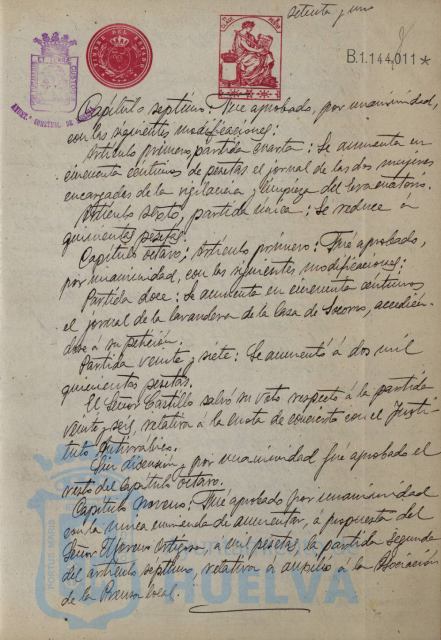 setenta y uno
B.1.144,011*
TIMBRE DEL ESTADO
Capítulo septimo: Fué aprobado, por unanimidad,
con las siguientes modificaciones:
Artículo primero, partida cuarta: Se aumenta en
cincuenta centimos de peseta el jornal de las dos mujeres
encargadas de la vigilancia y limpieza del evacuatorio.
Artículo sexto, partida única: Se reduce á
quinientas pesetas.
Capítulo octavo; Artículo primero: Fué aprobado,
por unanimidad, con las siguientes modificaciones:
Partida doce: Se aumenta en cincuenta centimos
el jornal de la lavandera de la Casa de Socorro, accedien-
dose a su petición.
Partida veinte y siete: Se aumentó á dos mil
quinientas pesetas.
El Señor Castillo salvó su voto respecto á la partida
veinte y seis, relativa á la cuota de concierto con el Insti-
tuto Antirrábico.
Sin discusión y por unanimidad fué aprobado el
resto del capítulo octavo.
Capítulo noveno: Fué aprobado por unanimidad
con la unica enmienda de aumentar, a propuesta del
Señor Moreno Ortega, a mil pesetas la partida segunda
del artículo septimo, relativa a auxilio a la Asociación
de la Prensa local.
PORTUS MARIS
HUELVA